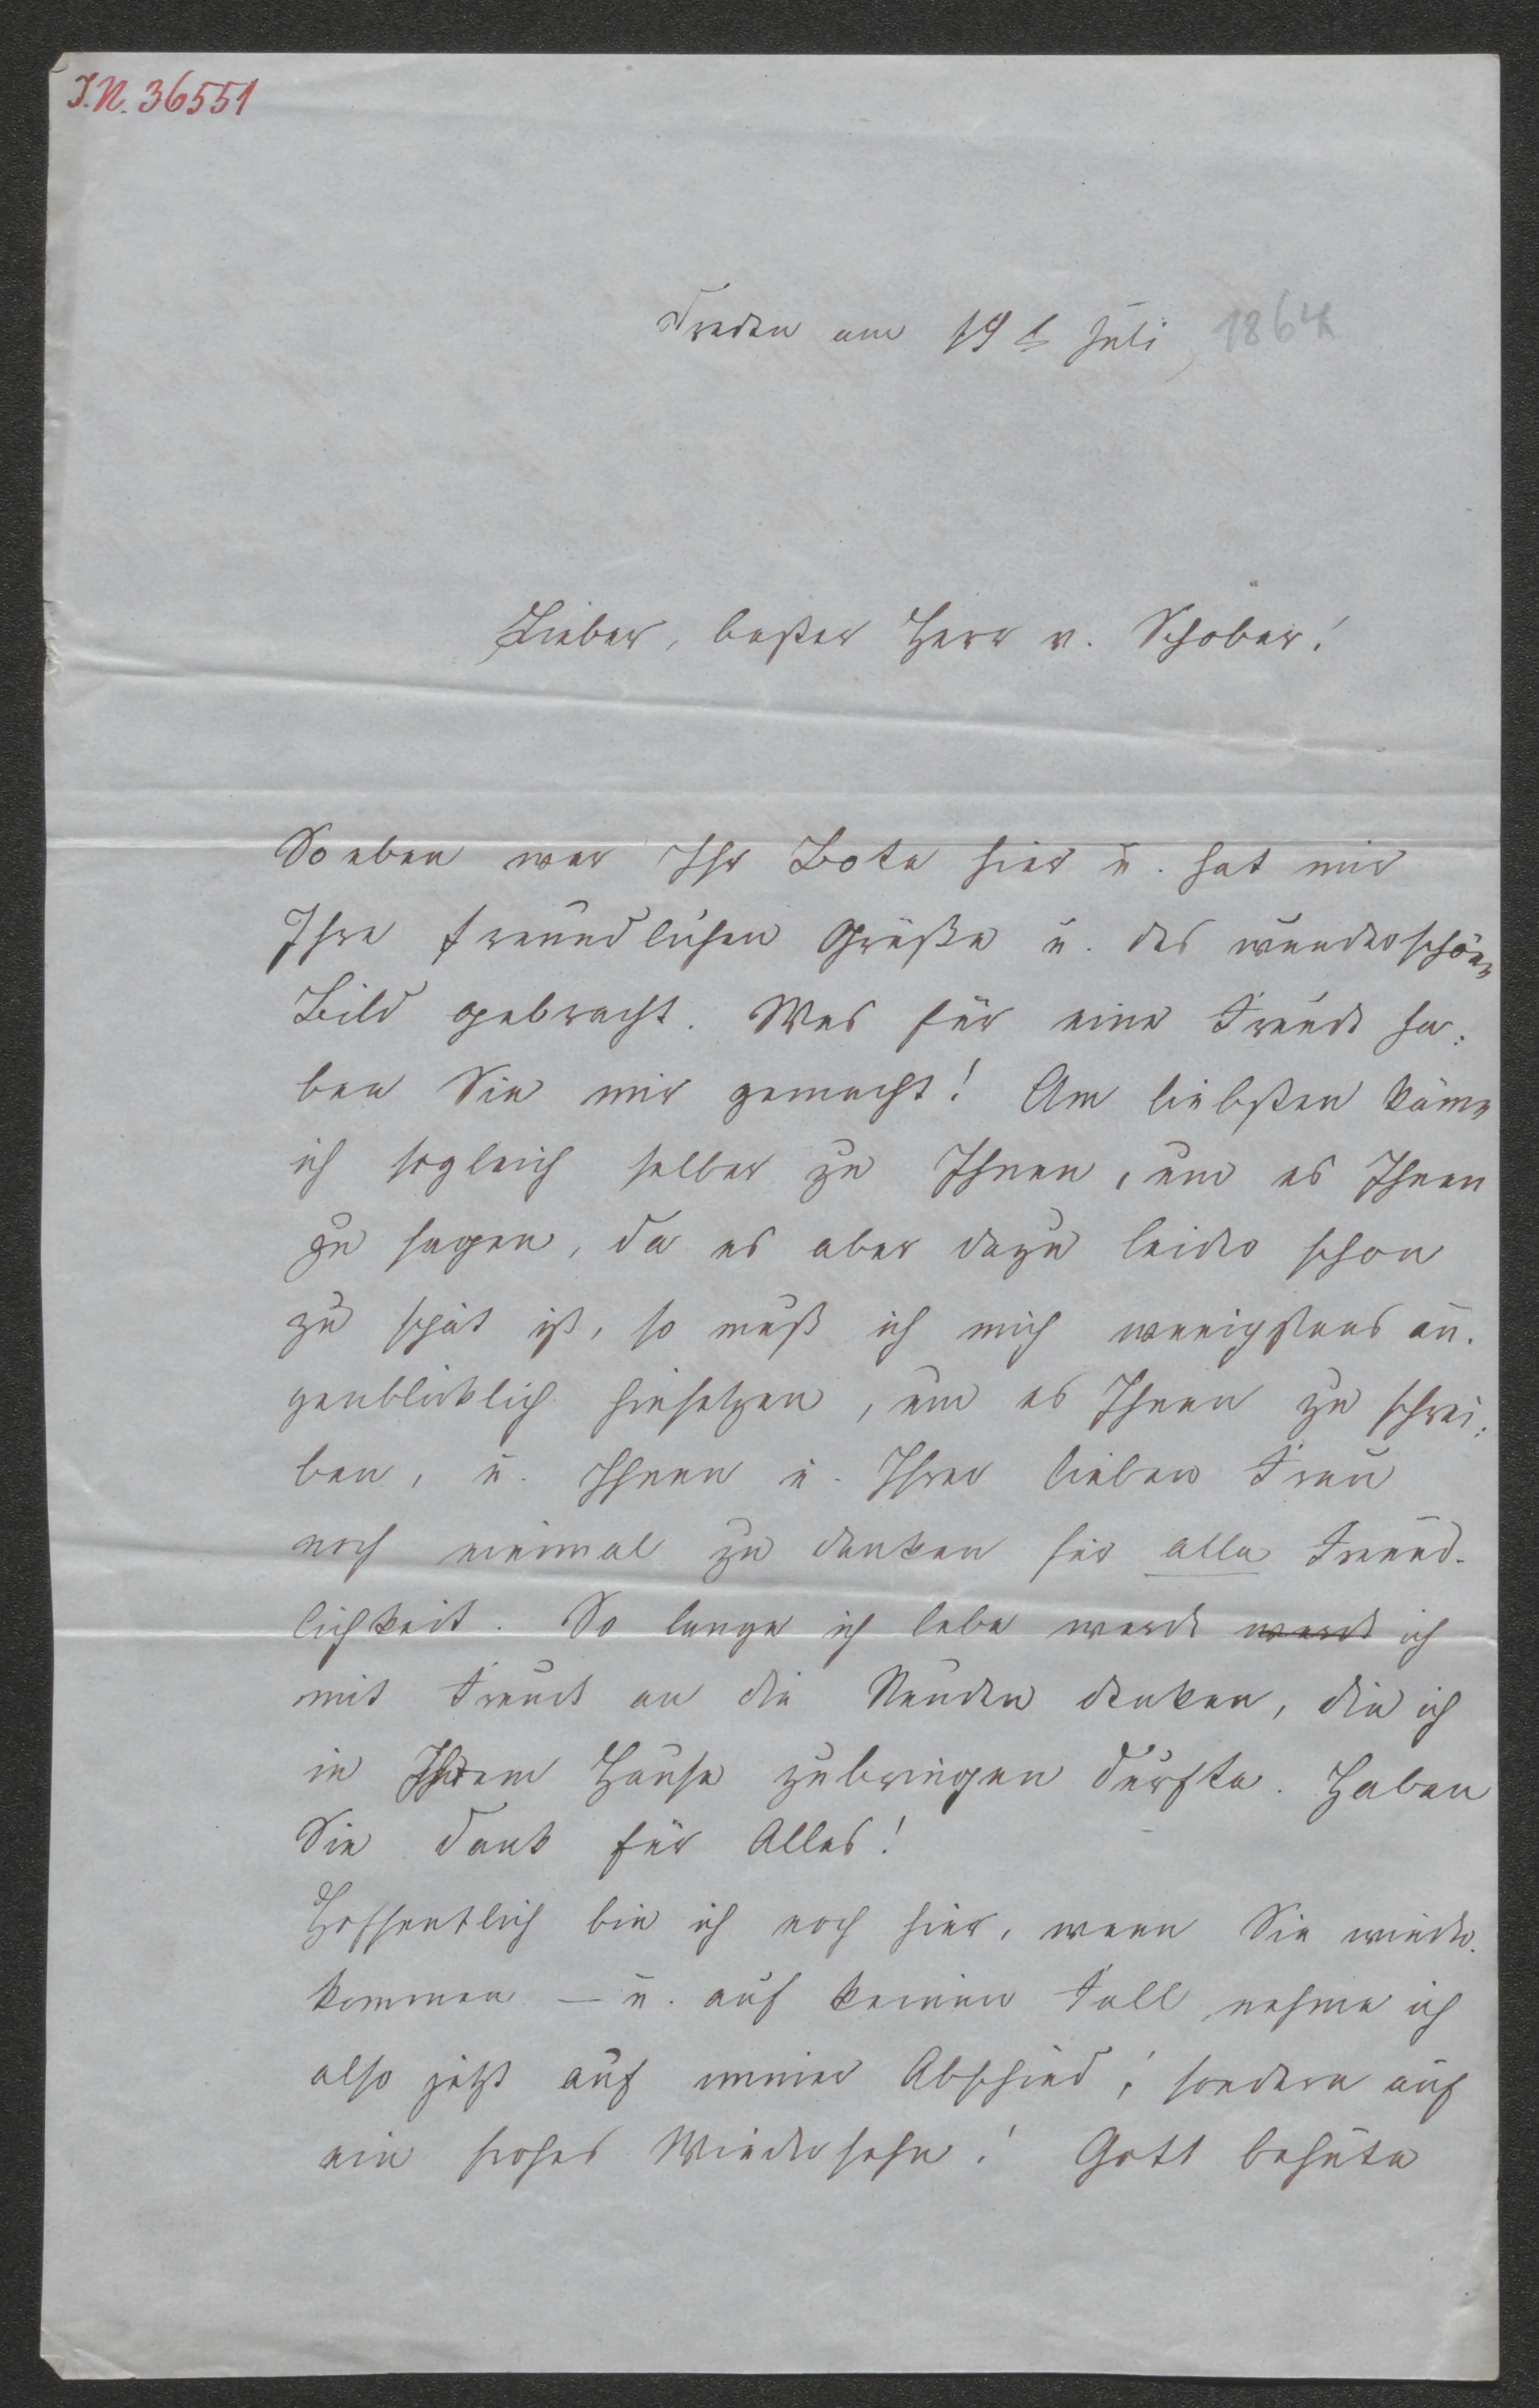 I.N. 36551
Dresden am 19t Juli, 1864
Lieber, bester Herr v. Schober!
Soeben war Ihr Bote hier u. hat mir
Ihre freundlichen Grüße u. das wunderschöne
Bild gebracht. Was für eine Freude ha-
ben Sie mir gemacht! Am liebsten käme
ich sogleich selber zu Ihnen, um es Ihnen
zu sagen, da es aber dazu leider schon
zu spät ist, so muß ich mich wenigstens au-
genblicklich hinsetzen, um es Ihnen zu schrei-
ben, u. Ihnen u. Ihrer lieben Frau
noch einmal zu danken für alle Freund-
lichkeit. So lange ich lebe werde werde ich
mit Freude an die Stunden denken, die ich
in Ihrem Hause zubringen durfte. Haben
Sie Dank für Alles!
Hoffentlich bin ich noch hier, wenn Sie wieder-
kommen – u. auf keinen Fall nehme ich
also jetzt auf immer Abschied, sondern auf
ein frohes Wiedersehn! Gott behüte